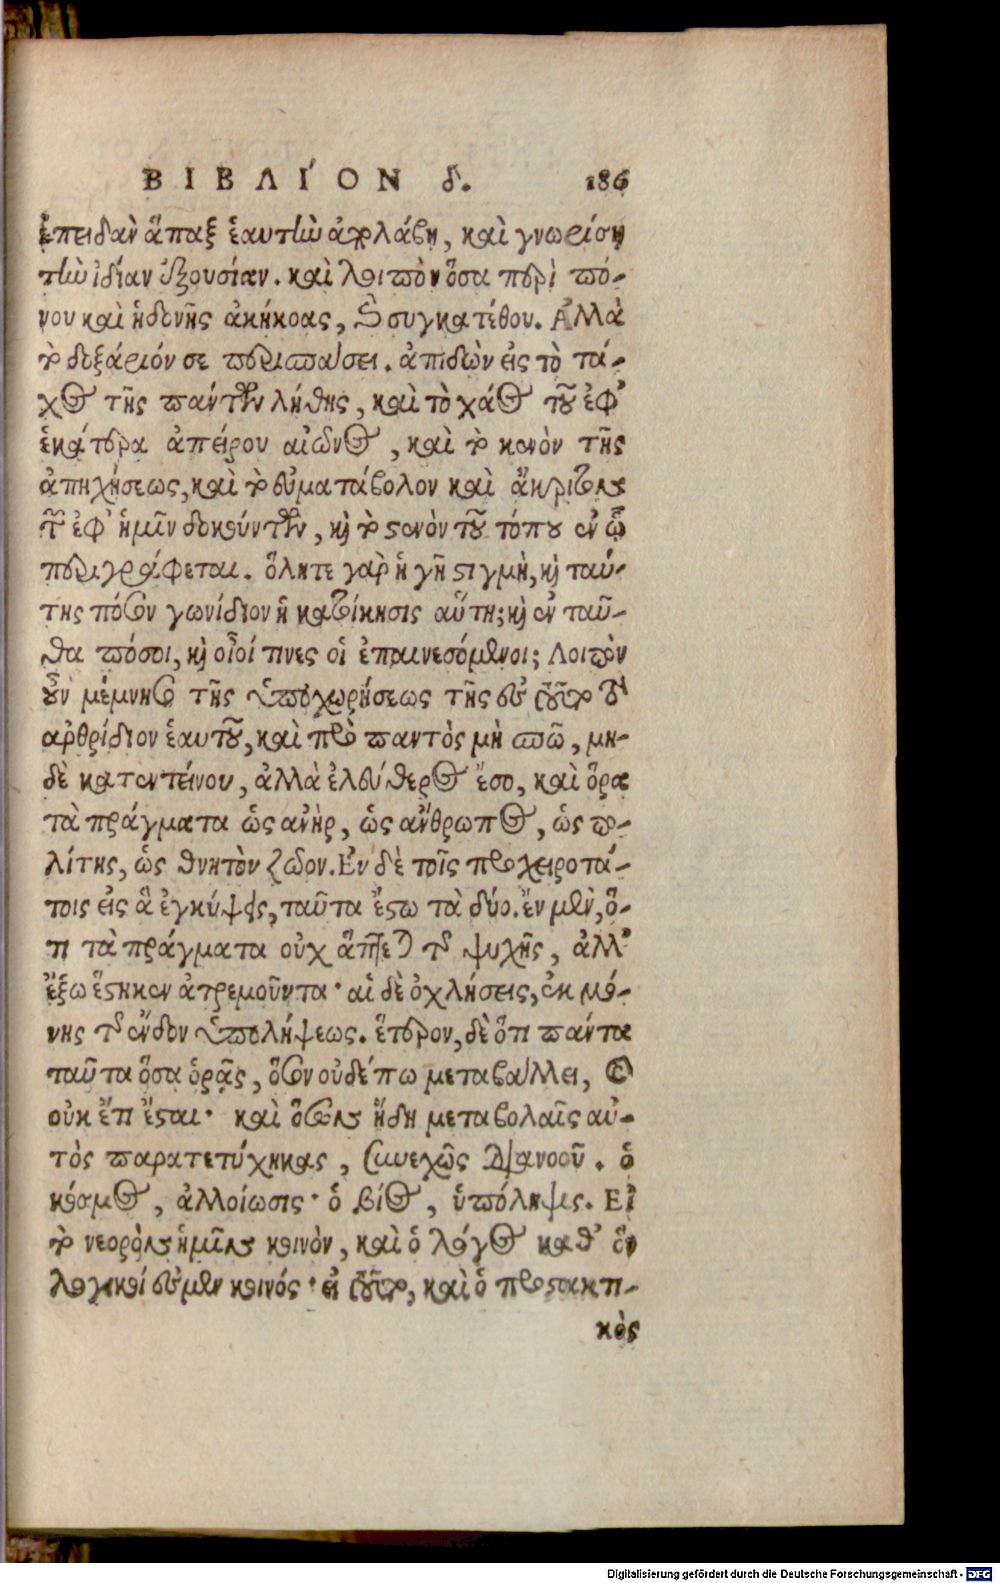 ΒΙΒΛΙ´ΟΝ δ. 186
ἐπειδὰν ἅπαξ ἑαυτὴν ἀπολάβῃ, καὶ γνωρίσῃ
τὴν ἰδίαν ἐξουσίαν. καὶ λοιπὸν ὅσα περὶ πό-
νου καὶ ἡδονῆς ἀκήκοας, καὶ συγκατέθου. Ἀλλὰ
τὸ δοξάριόν σε περισπάσει. ἀπιδὼν εἰς τὸ τά-
χος τῆς πάντων λήθης, καὶ τὸ χάος τοῦ ἐφ'
ἑκάτερα ἀπείρου αἰῶνος, καὶ τὸ κενὸν τῆς
ἀπηχήσεως, καὶ τὸ εὐματάβολον καὶ ἄκριτον
τῶν ἐφ' ἡμῖν δοκούντων, καὶ τὸ στενὸν τοῦ τόπου ἐν ᾧ
περιγράφεται. ὅλητε γὰρ ἡ γῆ στιγμὴ, καὶ ταύ-
της πόσον γωνίδιον ἡ κατοίκησις αὕτη; καὶ ἐνταῦ-
θα πόσοι, καὶ οἷοί τινες οἱ ἐπαινεσόμενοι; Λοιπὸν
οὖν μέμνησο τῆς ὑποχωρήσεως τῆς εἰς τοῦτο τὸ
ἀρθρίδιον ἑαυτοῦ, καὶ πρὸ παντὸς μὴ σπῶ, μη-
δὲ κατεντείνου, ἀλλὰ ἐλεύθερος ἔσο, καὶ ὅρα
τὰ πράγματα ὡς ἀνὴρ, ὡς ἄνθρωπος, ὡς πο-
λίτης, ὡς θνητὸν ζῶον. Ἐν δὲ τοῖς προχειροτά-
τοις εἰς ἃ ἐγκύψεις, ταῦτα ἔστω τὰ δύο. ἓν μὲν, ὅ-
τι τὰ πράγματα οὐχ ἅπτεται τῆς ψυχῆς, ἀλλ'
ἔξω ἕστηκεν ἀτρεμοῦντα· αἱ δὲ ὀχλήσεις, ἐκ μό-
νης τῆς ἔνδον ὑπολήψεως. ἕτερον, δὲ ὅτι πάντα
ταῦτα ὅσα ὁρᾷς, ὅσον οὐδέπω μεταβάλλει, καὶ
οὐκ ἔτι ἔσται· καὶ ὅσων ἤδη μεταβολαῖς αὐ-
τὸς παρατετύχηκας, συνεχῶς διανοοῦ. ὁ
κόσμος, ἀλλοίωσις· ὁ βίος, ὑπόληψις. Εἰ
τὸ νεορὸν ἡμῖν κοινὸν, καὶ ὁ λόγος καθ' ὃν
λογικοί ἐσμεν κοινός· εἰ τοῦτο, καὶ ὁ προστακτι-
κὸς
Digitalisierung gefördert durch die Deutsche Forschungsgemeinschaft - DFG